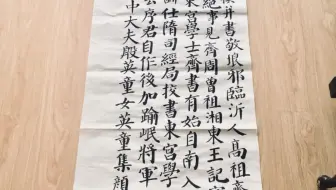 并書敬琅邪臨沂人高祖
絕事見齊周曾祖湘東王記
東宮學士齊書有始自南入
仕隋司經局校書東宮學
云序君自作後加踰岷將軍
中大夫殷英童女英童集顏